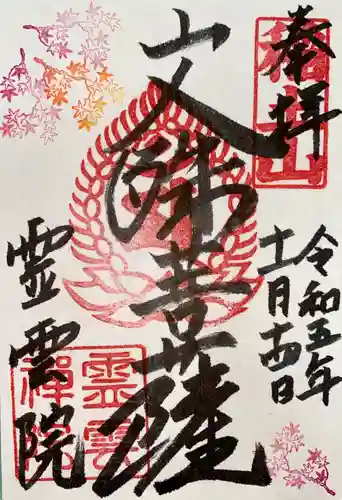 奉拝
令和五年
十一月十四日
文殊菩薩
霊雲院
霊雲
禅院